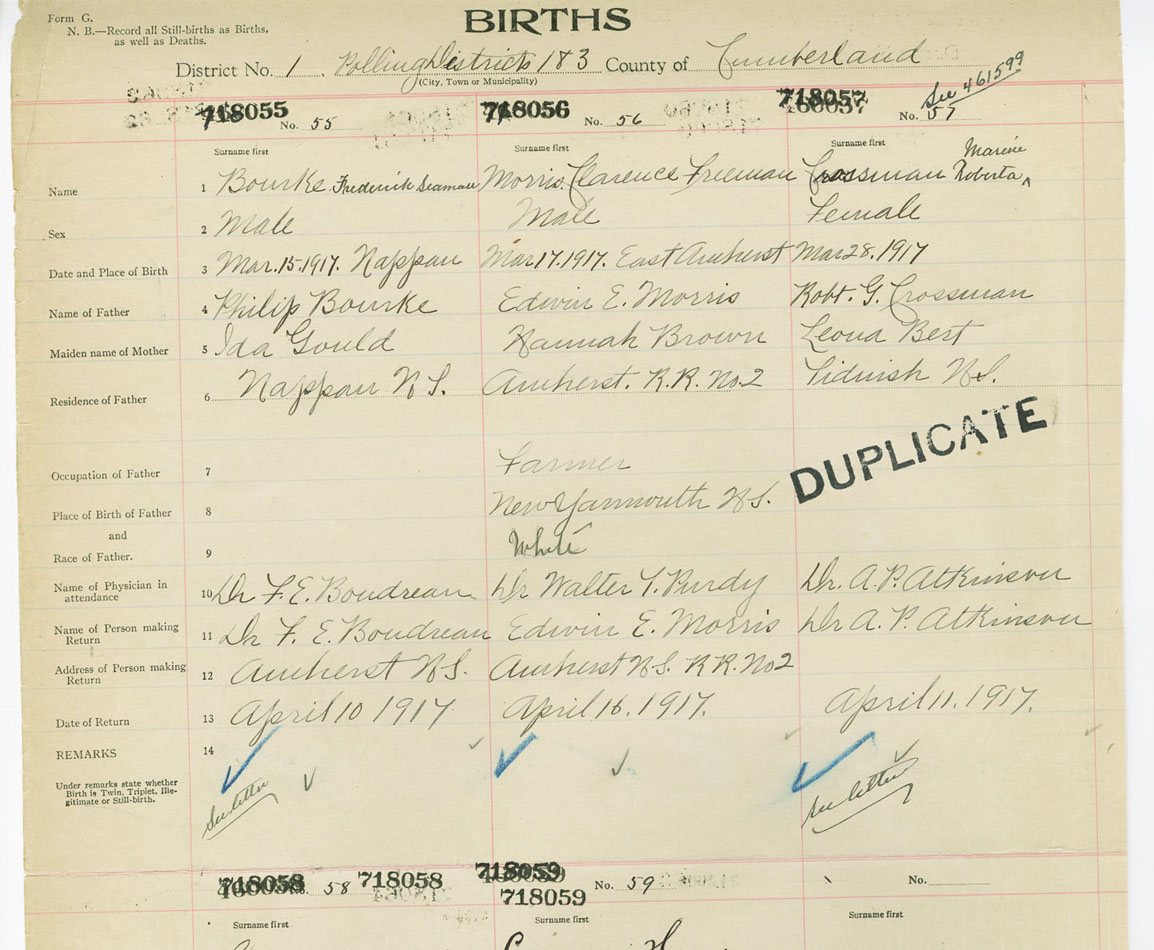 Form G.
BIRTHS
N. B.—Record all Still-births as Births,
as well as Deaths.
District No. 1 Polling Districts 183 County of Cumberland
(City, Town or Municipality)
See 461599
718055 No. 55 718056 No. 56 718057 No. 57
Surname first Surname first Surname first
Marine
Name 1 Bourke Frederick Seaman Morris, Clarence Freeman Crossman Roberta,
Sex 2 Male Male Female
Date and Place of Birth 3 Mar. 15. 1917. Nappan Mar 17. 1917. East Amherst Mar 28. 1917
Name of Father 4 Philip Bourke Edwin E. Morris Robt. G. Crossman
Maiden name of Mother 5 Ida Gould Hannah Brown Leona Best
Residence of Father 6 Nappan N S. Amherst. R. R. No. 2 Tidnish N.S.
DUPLICATE
Occupation of Father 7 Farmer
Place of Birth of Father 8 New Yarmouth N.S.
and
Race of Father. 9 White
Name of Physician in
attendance 10 Dr F. E. Boudreau Dr Walter T. Purdy Dr. A. P. Atkinson
Name of Person making
Return 11 Dr F. E. Boudreau Edwin E. Morris Dr A. P. Atkinson
Address of Person making
Return 12 Amherst N S. Amherst N S. R R. No 2
Date of Return 13 April 10 1917 April 16. 1917. April 11. 1917.
REMARKS 14
Under remarks state whether
Birth is Twin, Triplet, Ille-
gitimate or Still-birth.
See letter See letter
718058 No. 58 718058 718059 No. 59 No.
718059
Surname first Surname first Surname first